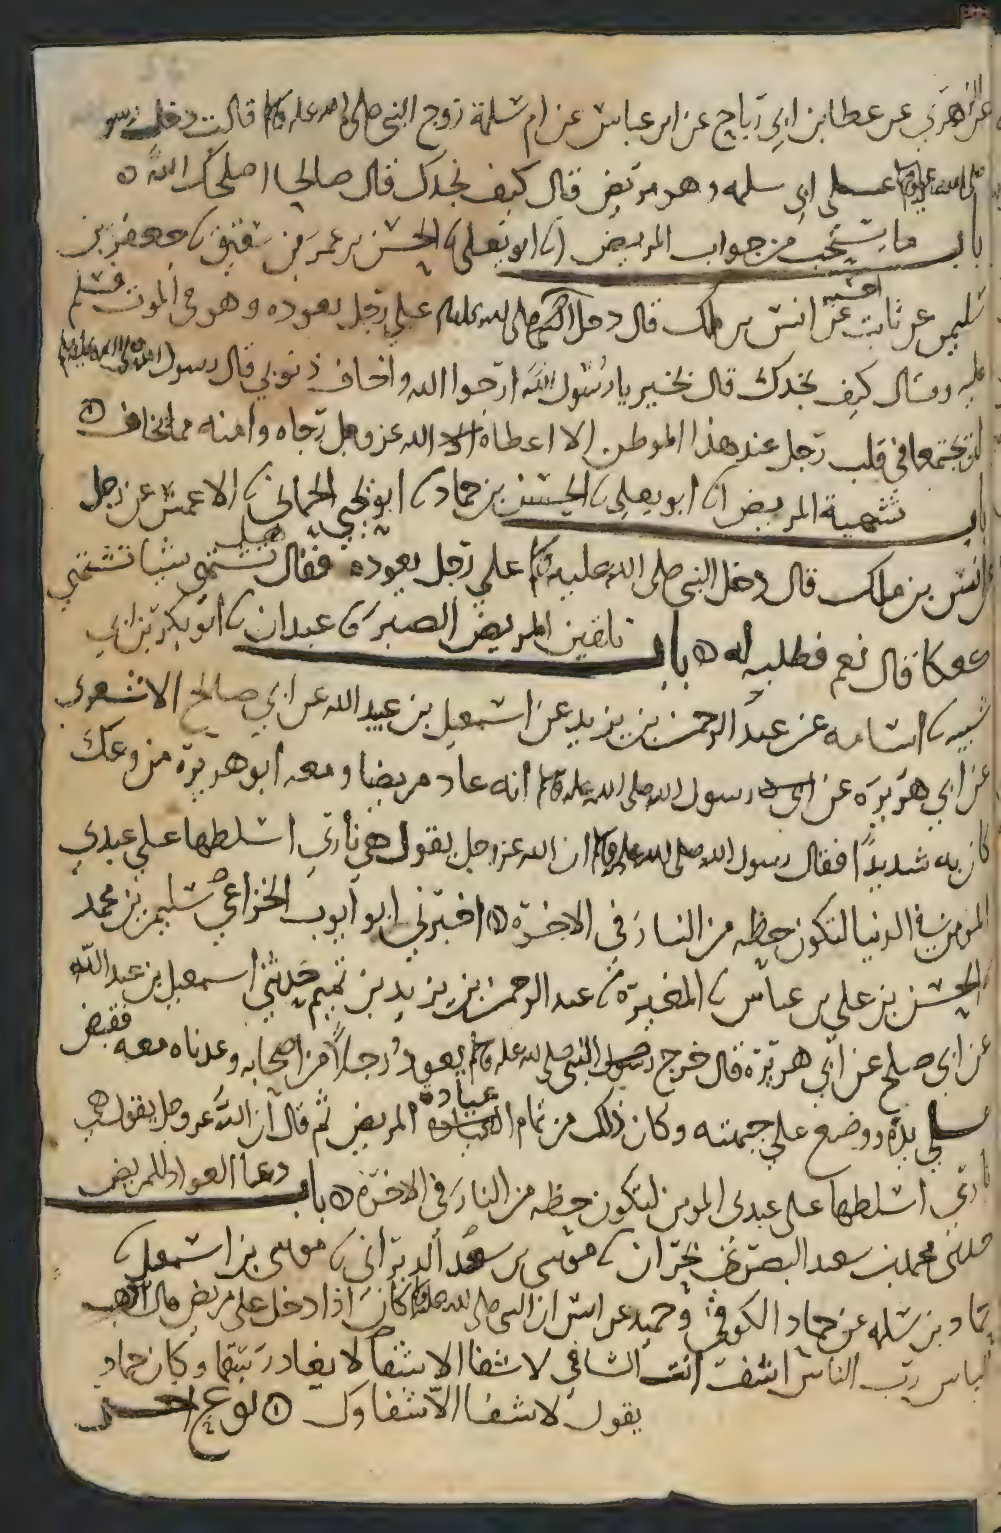 عن الزهري عن عطا بن ابي رباح عن ابن عباس عن ام سلمة زوج النبي صلى الله عليه وسلم قالت دخل رسول
صلى الله عليه وسلم على ابي سلمه وهو مريض قال كيف تجدك قال صالحا اصلحك الله ه
باب ما يستحب من جواب المريض ابو يعلى الحسن بن عمر بن شقيق جعفر بن
سليمن عن ثابت عن احسبه انس بن ملك قال دخل النبي صلى الله عليه وسلم على رجل يعوده وهو في الموت فسلم
عليه وقال كيف تجدك قال بخير يا رسول الله ارجوا الله واخاف ذنوبي قال رسول الله صلى الله عليه وسلم
لن يجتمعا في قلب رجل عند هذا الموطن الا اعطاه الله عز وجل رجاه وامنه مما يخاف ه
باب تشهية المريض ابو يعلى الحسن بن حماد ابو يحيى الحماني الاعمش عن رجل
عن انس بن ملك قال دخل النبي صلى الله عليه وسلم على رجل يعوده فقال هل تشتهي شيا تشتهي
كعكا قال نعم فطلبه له ه باب تلقين المريض الصبر عبدان ابو بكر بن ابي
شيبه اسامه عن عبد الرحمن بن يزيد عن اسمعيل بن عبيد الله عن ابي صالح الاشعري
عن ابي هريرة عن رسول الله صلى الله عليه وسلم انه عاد مريضا ومعه ابو هريرة من وعك
كان به شديدا فقال رسول الله صلى الله عليه وسلم ان الله عز وجل يقول هي ناري اسلطها على عبدي
المومن في الدنيا لتكون حظه من النار في الاخرة ه اخبرني ابو ايوب الخزاعي سليمن بن محمد
الحسن بن علي بن عياش المغيرة عبد الرحمن بن يزيد بن تميم حدثني اسمعيل بن عبد الله
عن ابي صلح عن ابي هريرة قال خرج النبي صلى الله عليه وسلم يعود رجلا من اصحابه وعدناه معه فقبض
على يده ووضع على جبهته وكان ذلك من تمام عيادة المريض ثم قال ان الله عز وجل يقول هي
ناري اسلطها على عبدي المومن لتكون حظه من النار في الاخرة ه باب دعا العواد للمريض
حدثني محمد بن سعد البصري بحران موسى بن سعد الديراني موسى بن اسمعيل
حماد بن سلمه عن حماد الكوفي وحميد عن انس ان النبي صلى الله عليه وسلم كان اذا دخل على مريض قال اذهب
الباس رب الناس اشف انت الشافي لا شفا الا شفاك لا يغادر سقما وكان حماد
يقول لا شفا الا شفاوك ه نوع اخر